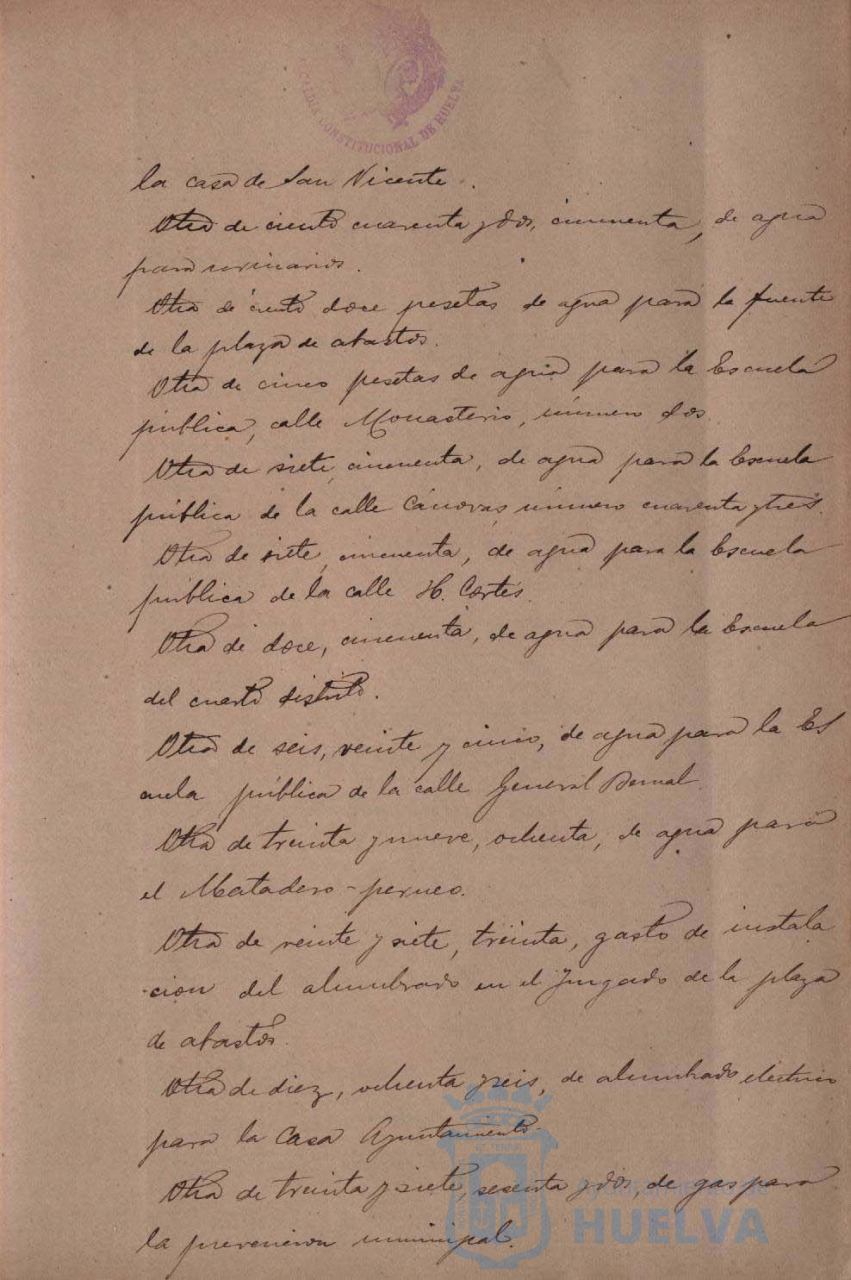 ALCALDIA CONSTITUCIONAL DE HUELVA
la casa de San Vicente.
Otra de ciento cuarenta y dos, cincuenta, de agua
para urinarios.
Otra de ciento doce pesetas de agua para la fuente
de la plaza de abastos.
Otra de cinco pesetas de agua para la Escuela
pública, calle Monasterio, número dos.
Otra de siete, cincuenta, de agua para la Escuela
pública de la calle Cánovas número cuarenta y tres.
Otra de siete, cincuenta, de agua para la Escuela
pública de la calle H. Cortés.
Otra de doce, cincuenta, de agua para la Escuela
del cuarto distrito.
Otra de seis, veinte y cinco, de agua para la Es
cuela pública de la calle General Bernal.
Otra de treinta y nueve, ochenta, de agua para
el Matadero-perneo.
Otra de veinte y siete, treinta, gasto de instala
cion del alumbrado en el Juzgado de la plaza
de abastos.
Otra de diez, ochenta y seis, de alumbrado eléctrico
para la Casa Ayuntamiento.
Otra de treinta y siete, sesenta y dos, de gas para
la prevencion municipal.
Ayuntamiento de
HUELVA